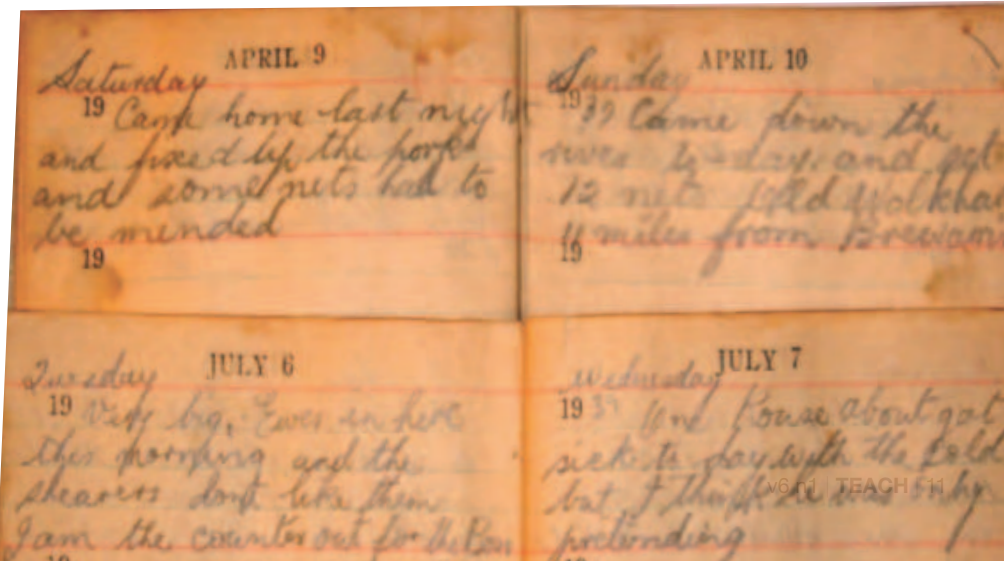 APRIL 9
Saturday
19 Came home last night
and fixed up the
and some nets had to
be mended
19
APRIL 10
Sunday
19 39 Came down the
river to day and
12 nets
11 miles from
19
JULY 6
Tuesday
19 Very big, Ewes in here
this morning and the
shearers dont like them
I am the counter out for the
19
JULY 7
Wednesday
19 One Rouse about got
sick to day with the cold
but I think he was only
pretending
v6 n1 | TEACH • 11